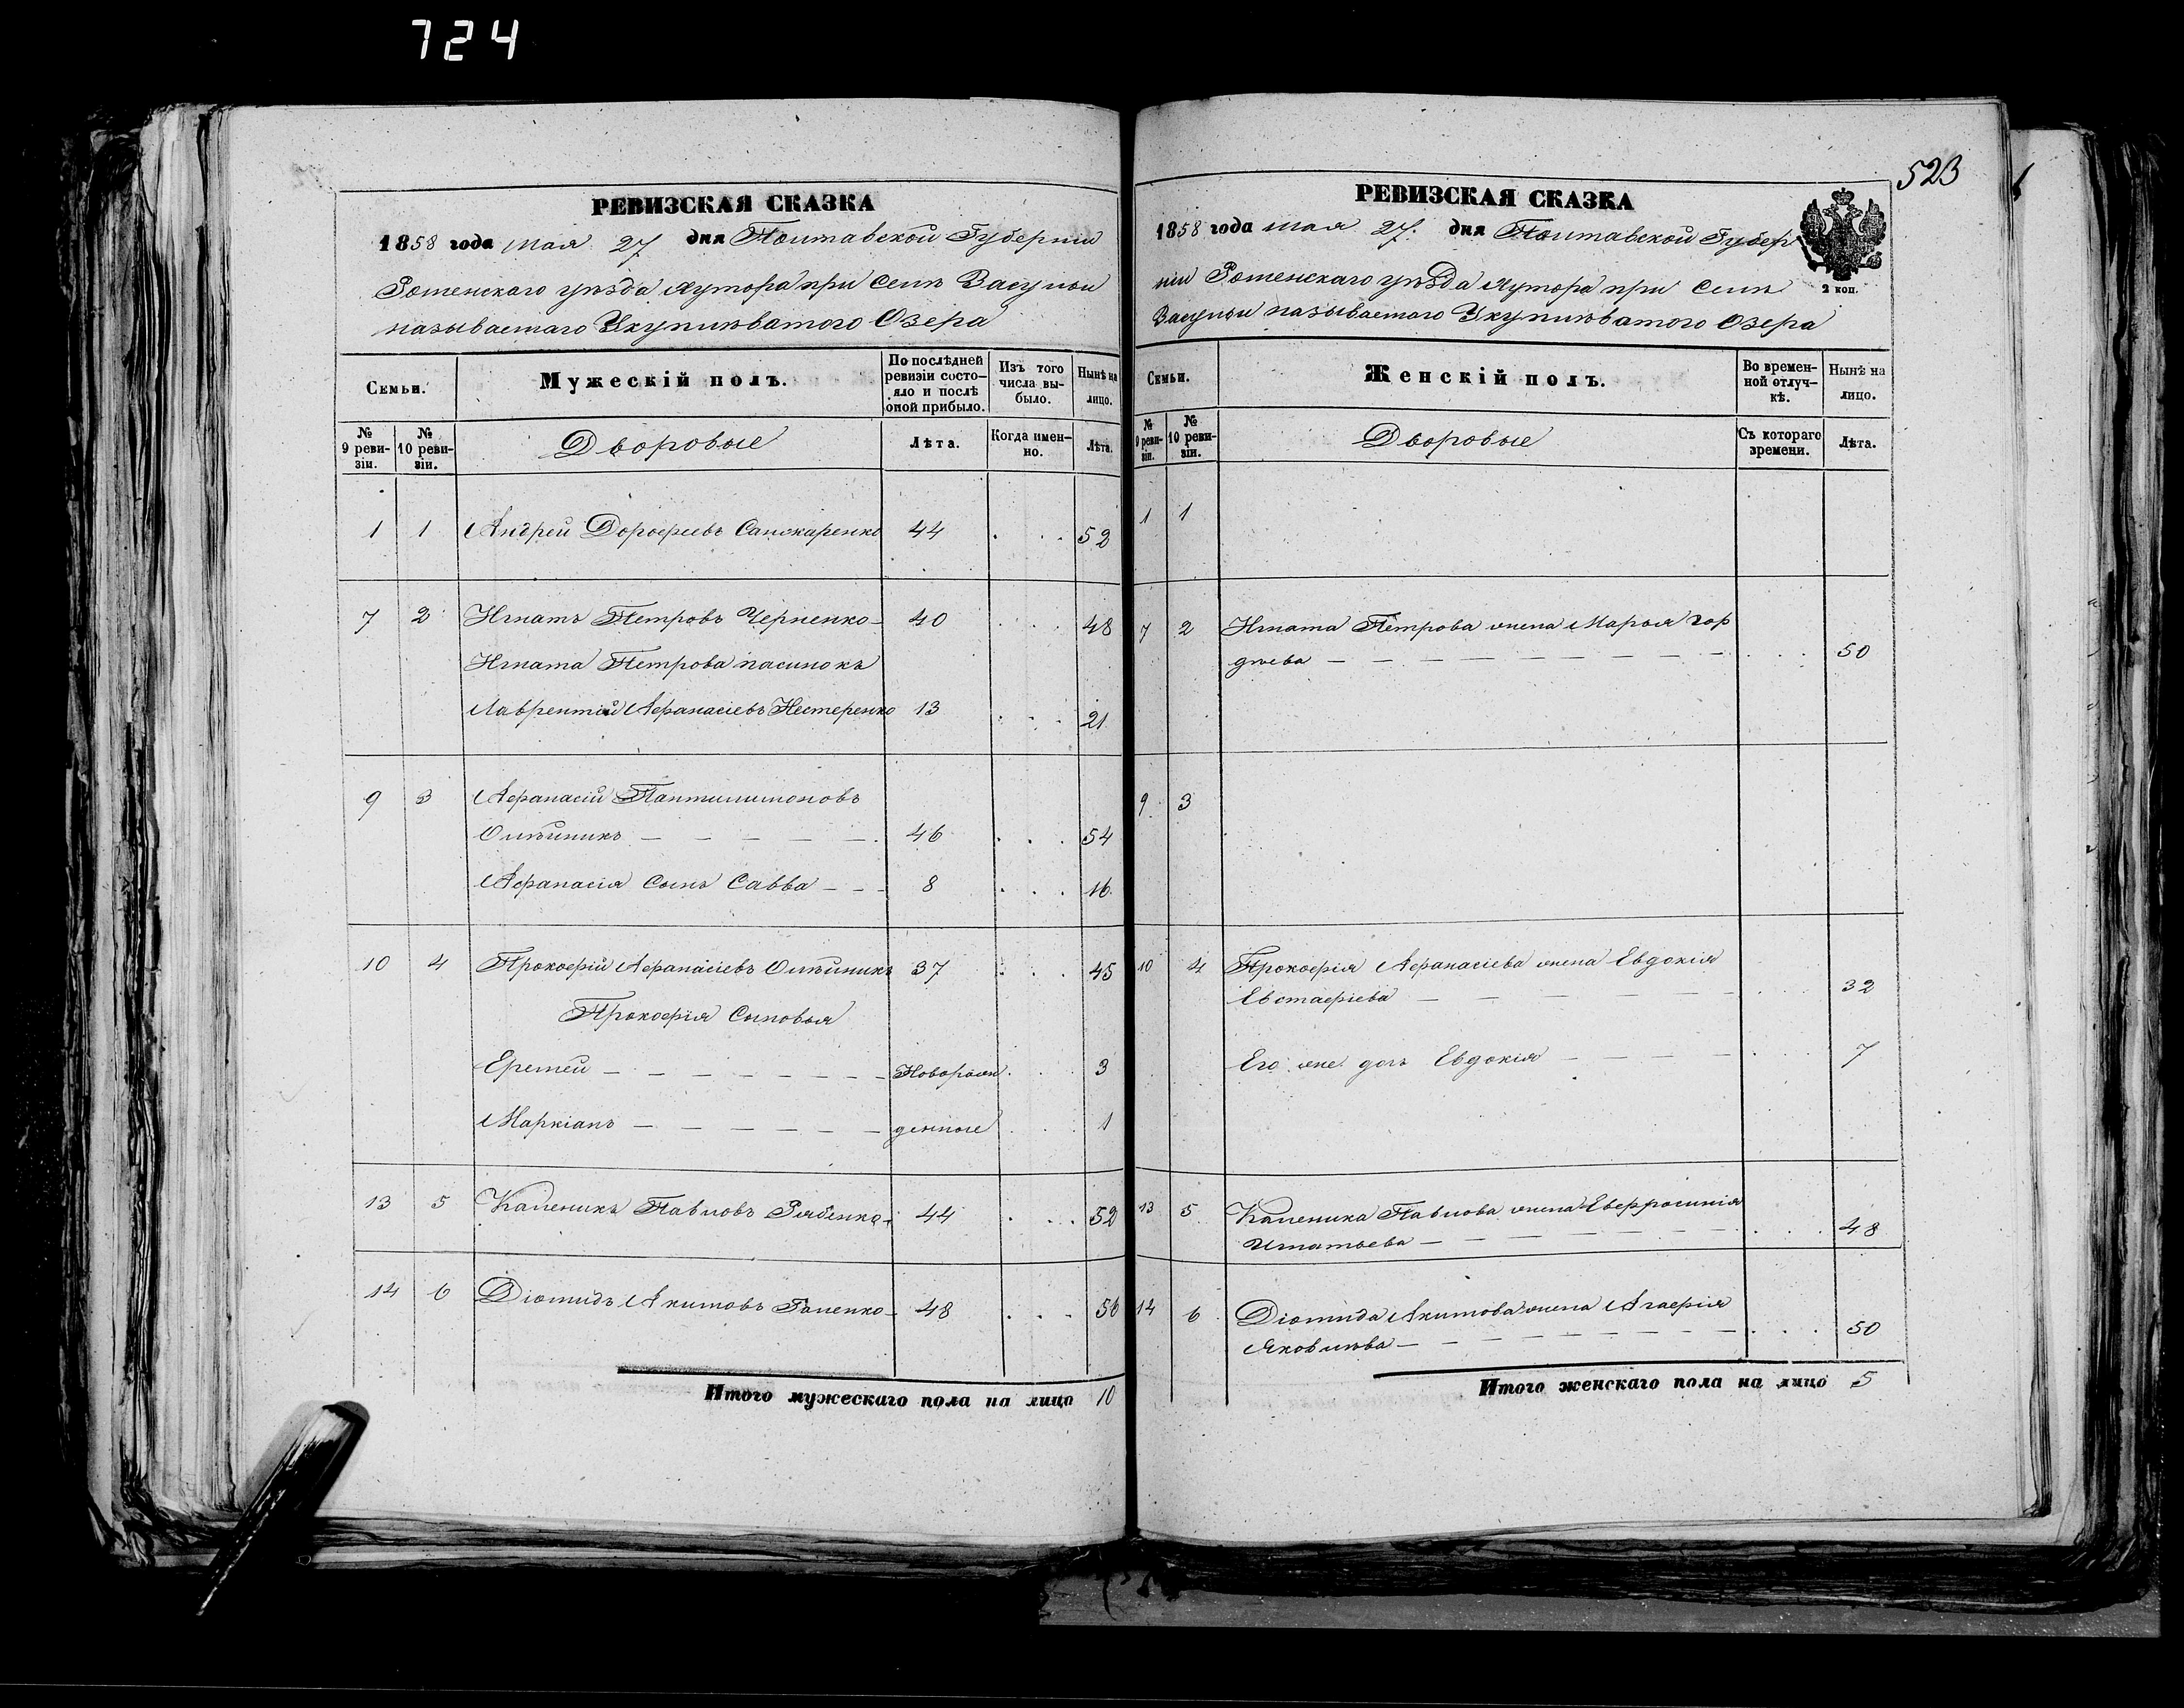 724
РЕВИЗСКАЯ СКАЗКА
1858 года Мая 27 дня Полтавской Губерніи
Роменскаго уѣзда хутора при селѣ Засульи
называемаго Экуниковатого Озера
Семьи.
Мужескій полъ.
По послѣдней ревизіи состояло и послѣ оной прибыло.
Изъ того числа выбыло.
Нынѣ на лицо.
№ 9 ревизіи.
№ 10 ревизіи.
Дворовые
Лѣта.
Когда именно.
Лѣта.
1 1 Андрей Дорофеевъ 44 52
7 2 Игнатъ Петровъ Черненко 40 48
Игната Петрова пасинокъ
Лаврентій Афанасіевъ Нестеренко 13 21
9 3 Афанасій Пантилимоновъ
Олѣйникъ 46 54
Афанасія Сынъ Савва 8 16
10 4 Прокофій Афанасіевъ Олѣйникъ 37 45
Прокофія Сыновья
Еремей Новорож 3
Маркіанъ денные 1
13 5 Каленикъ Павловъ Рябенко 44 52
14 6 Діомидъ Акимовъ Гапенко 48 56
Итого мужескаго пола на лицо 10
523
РЕВИЗСКАЯ СКАЗКА
1858 года мая 27. дня Полтавской Губер
2 коп.
ніи Роменскаго уѣзда хутора при селѣ
Засульи называемаго Озера
Семьи.
Женскій полъ.
Во временной отлучкѣ.
Нынѣ на лицо.
№ 9 ревизіи.
№ 10 ревизіи.
Дворовые
Съ котораго времени.
Лѣта.
1 1
7 2 Игната Петрова жена Марья Гор
дѣева 50
9 3
10 4 Прокофія Афанасіева жена Евдокія
Евстафіева 32
Его же дочь Евдокія 7
13 5 Каленика Павлова жена Евфросинія
Игнатьева 48
14 6 Діомида Акимова жена Агафія
Яковлѣва 50
Итого женскаго пола на лицо 5